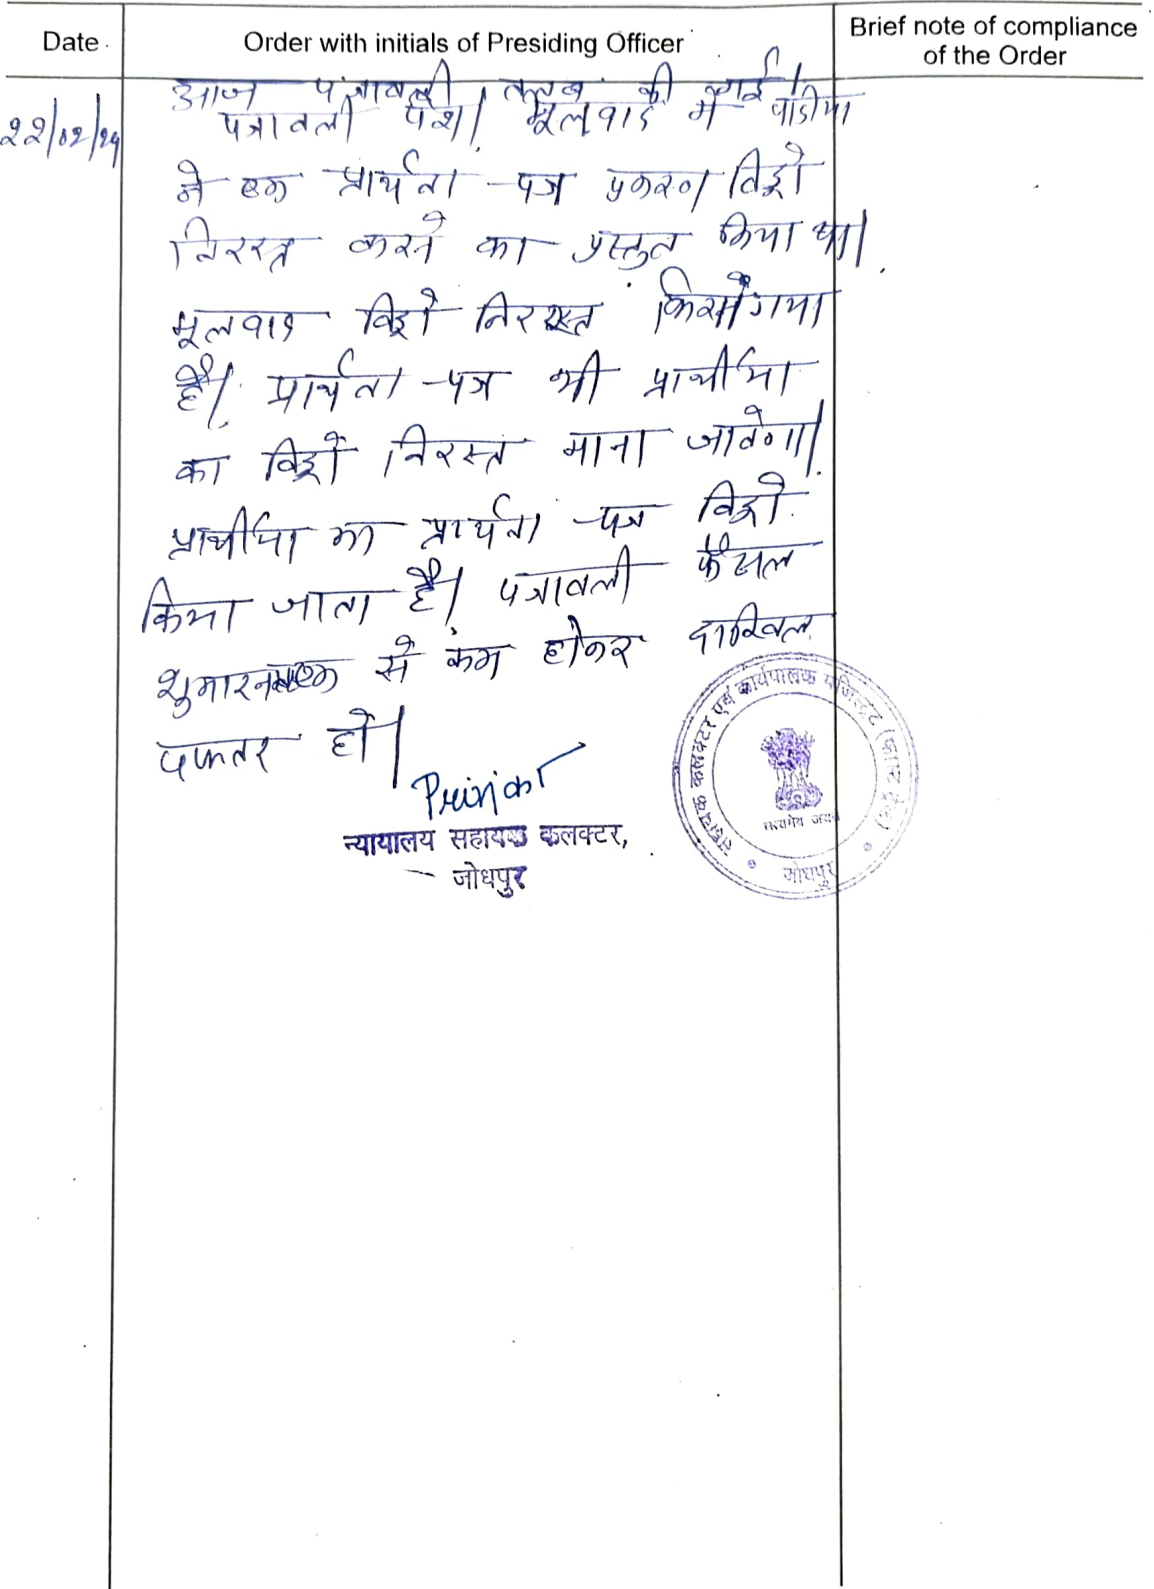 Date
Order with initials of Presiding Officer
Brief note of compliance
of the Order
22/02/24
आज पत्रावली तलब की गई।
पत्रावली पेश। मूलवाद में वादीया
ने एक प्रार्थना-पत्र प्रकरण विड्रो
निरस्त करने का प्रस्तुत किया था।
मूलवाद विड्रो निरस्त किया गया
है। प्रार्थना-पत्र भी प्रार्थीया
का विड्रो निरस्त माना जावेगा।
प्रार्थीया का प्रार्थना-पत्र विड्रो
किया जाता है। पत्रावली फैसल
शुमार से कम होकर दाखिल
दफ्तर हो।
न्यायालय सहायक कलक्टर,
जोधपुर
सहायक कलक्टर एवं कार्यपालक मजिस्ट्रेट (फास्ट ट्रैक)
सत्यमेव जयते
जोधपुर